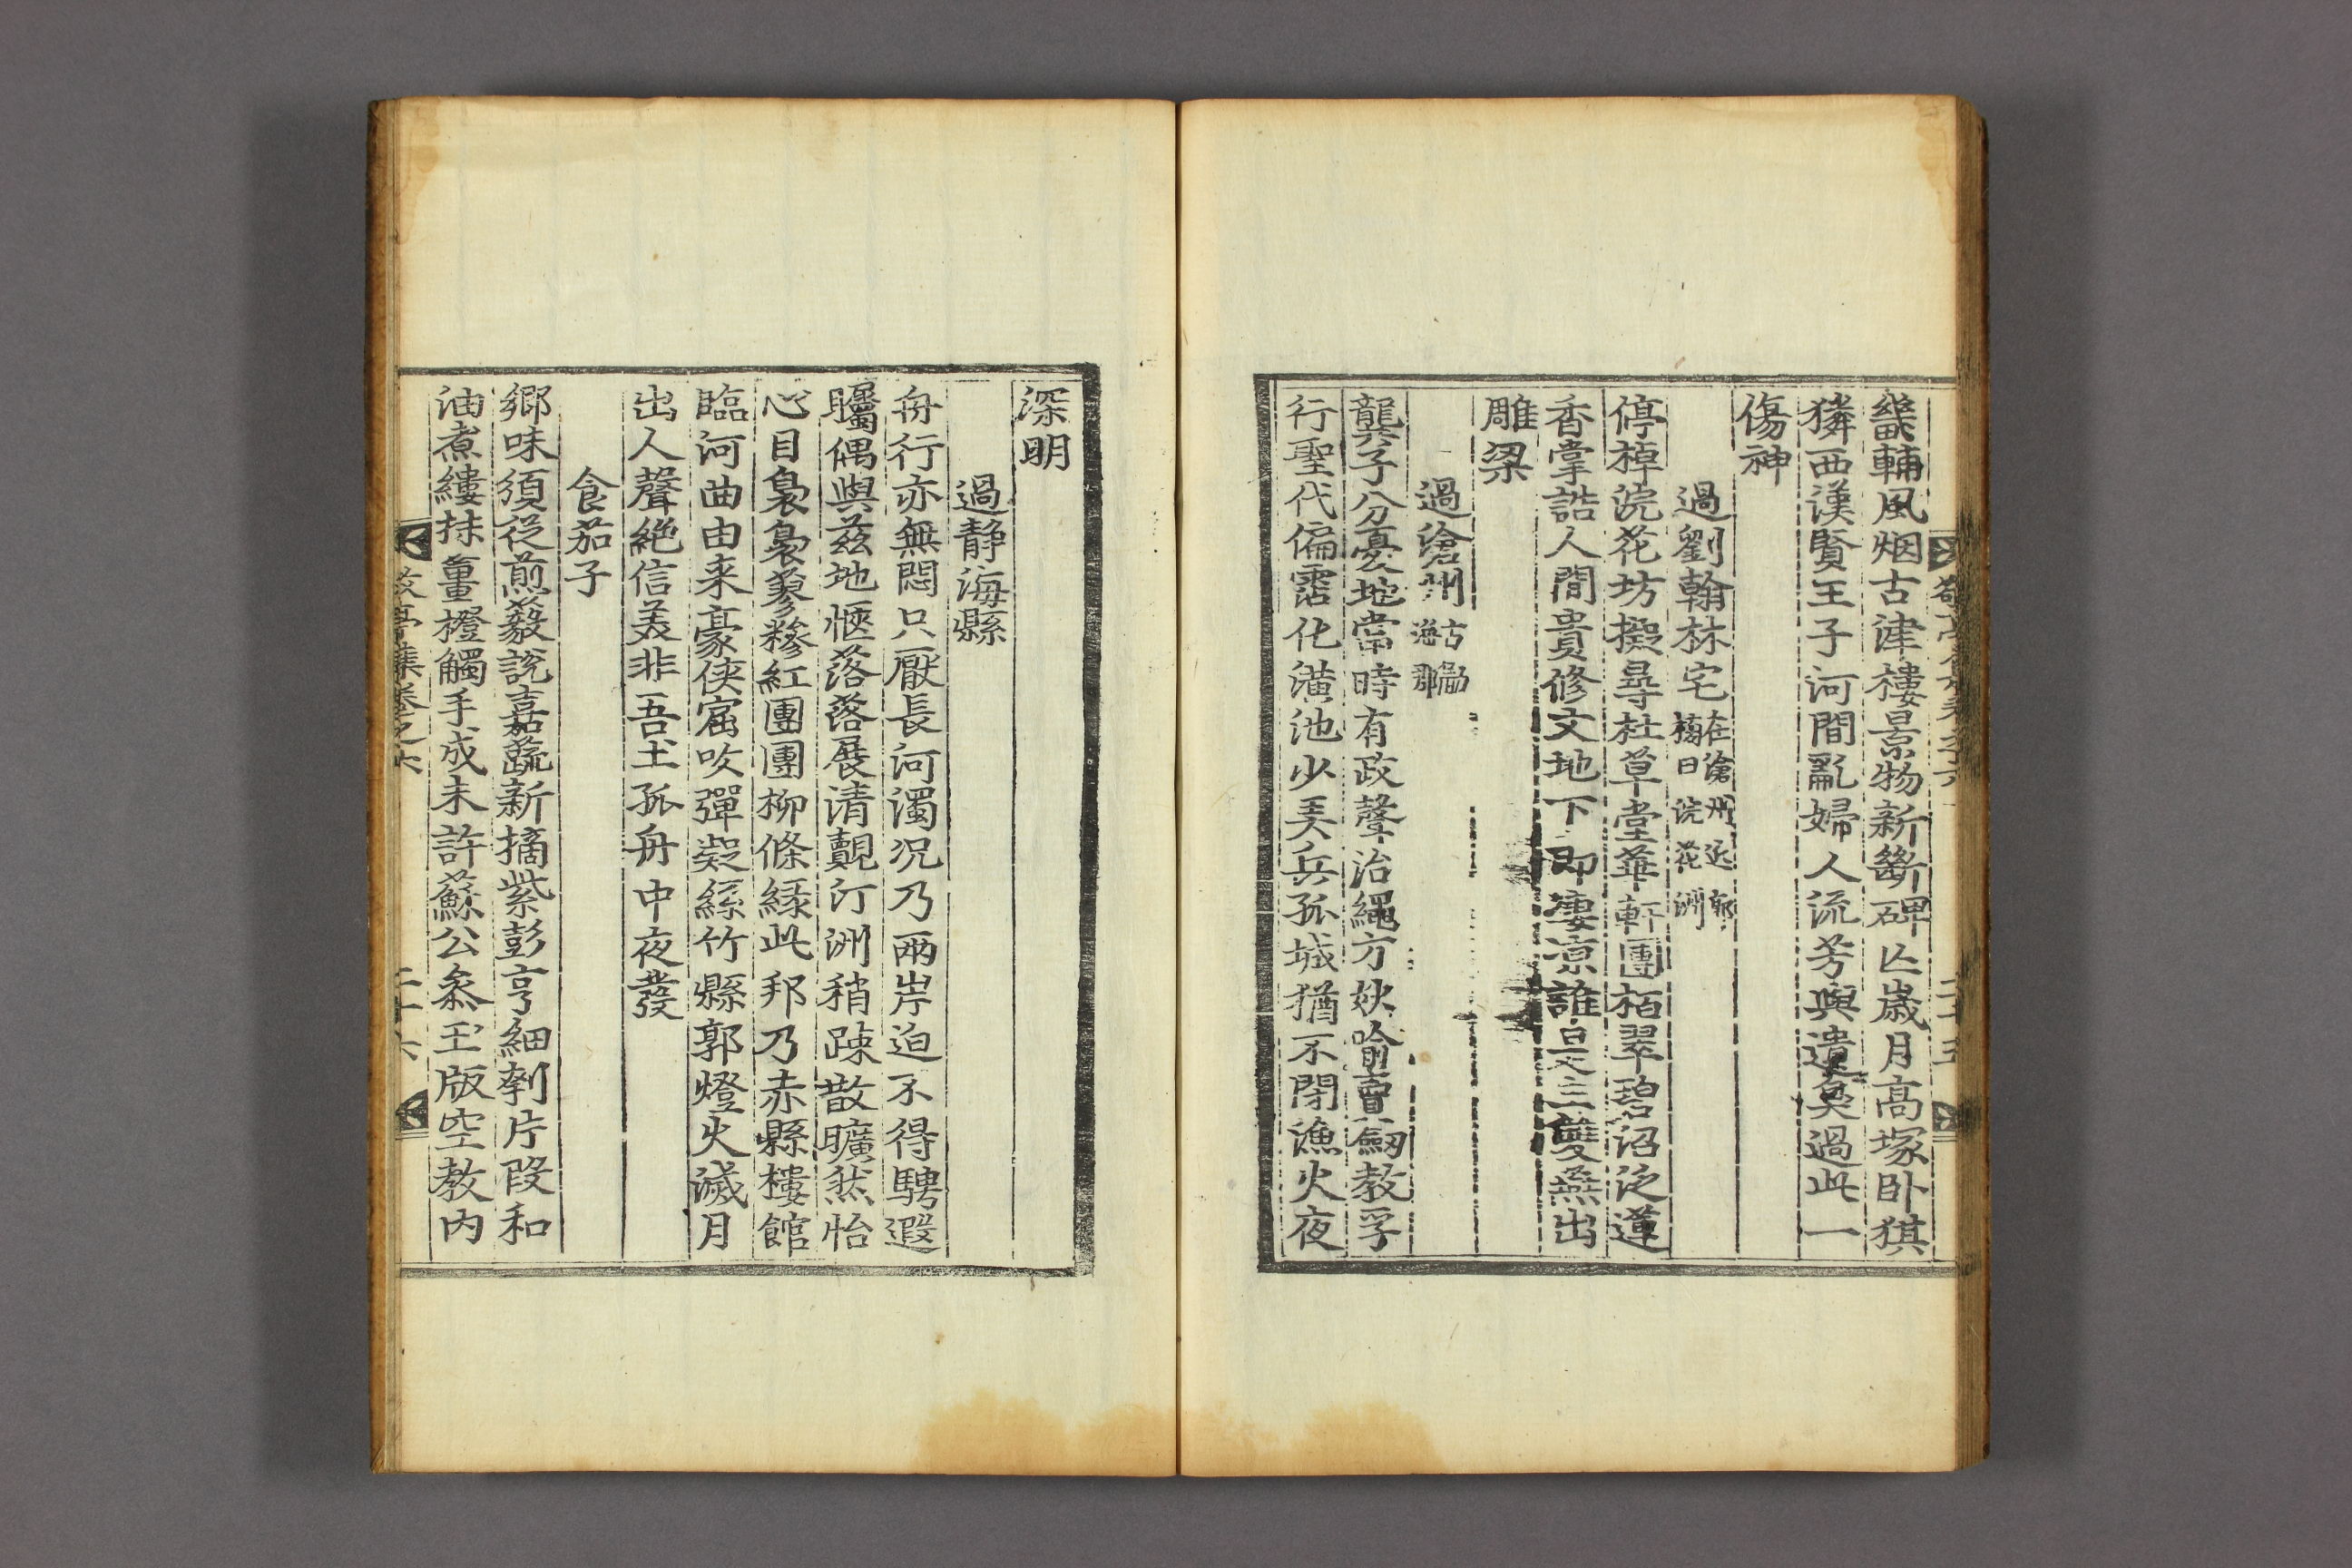 畿輔風烟古津樓景物新斷碑亡歲月高塚卧猉
獜西漢賢王子河間亂婦人流芳與遺臭過此一
傷神
過劉翰林宅在滄州近郭榜曰浣花洲
停棹浣花坊擬尋杜草堂華軒團栢翠碧沼泛蓮
香掌誥人間貴修文地下即凄凉誰
雙燕出
雕梁
過滄州古勃海郡
龔子分憂地當時有政聲治繩方妙喩賣劒教孚
行聖代偏霑化潢池少弄兵孤城猶不閉漁火夜
深明
過静海縣
舟行亦無悶只厭長河濁况乃兩岸迫不得騁遐
矚偶與兹地愜落落展清覿汀洲稍踈散曠然怡
心目裊裊蔘糝紅團團柳條緑此邦乃赤縣樓館
臨河曲由来豪侠窟吹彈凝絲竹縣郭燈火滅月
出人聲絶信美非吾土孤舟中夜發
食茄子
鄉味須從煎蔱說嘉蔬新摘紫彭亨細刳片段和
油煮縷抹虀橙觸手成未許蘇公叅玉版空教内
集卷之六 二十六